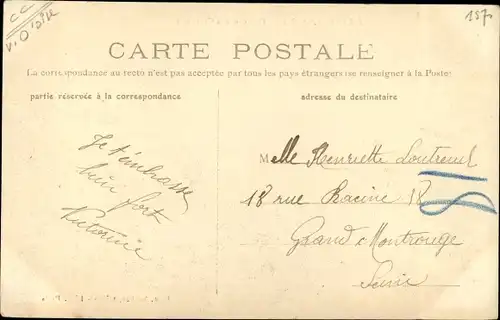 CC
V. OISE
157
CARTE POSTALE
La correspondance au recto n'est pas acceptée par tous les pays étrangers (se renseigner à la Poste)
partie réservée à la correspondance
adresse du destinataire
Je t'embrasse
bien fort
Victorine
Melle Henriette Loutreuil
18 rue Racine 18
Grand Montrouge
Seine